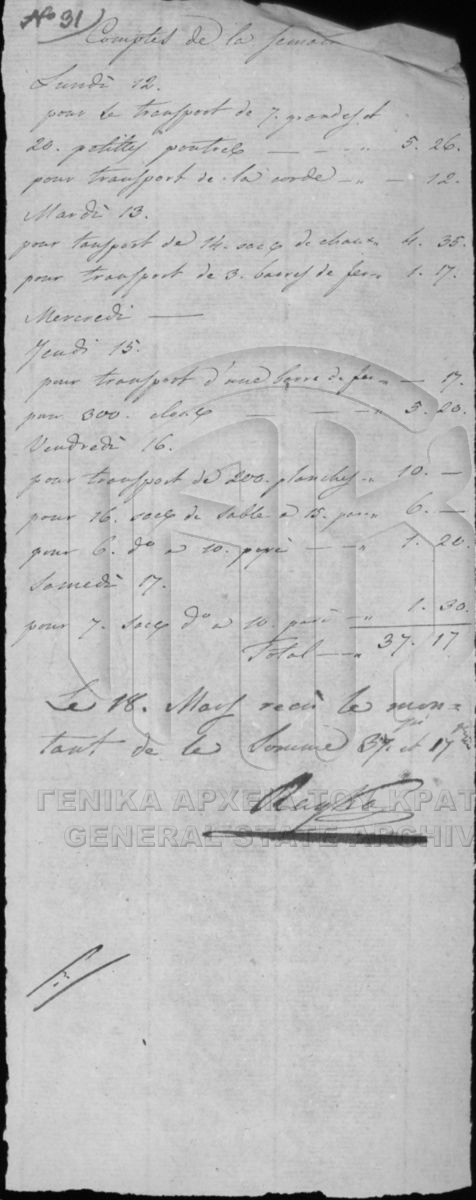 No 31
Comptes de la semain
Lundi 12.
pour le transport de 7. grandes et
20. petittes poutres — — — „ 5. 26.
pour transport de la corde — „ — 12.
Mardi 13.
pour tansport de 14. sacs de chaux „ 4. 35.
pour transport de 3. barres de fer „ 1. 17.
Mercredi —
Jeudi 15.
pour transport d'une barre de fer „ — 17.
pour 300. cloux — — — „ 5. 20.
Vendredi 16.
pour transport de 200. planches „ 10. —
pour 16. sacs de sable a 15. para „ 6. —
pour 6. do a 10. — — „ 1. 20.
Samedi 17.
pour 7. sacs do a 10. „ 1. 30.
Total — „ 37. 17
Le 18. Mars recu le mon=
tant de le Somme 37 et 17
Rayko
ΓΕΝΙΚΑ ΑΡΧΕΙΑ ΤΟΥ ΚΡΑΤ
GENERAL STATE ARCHIV